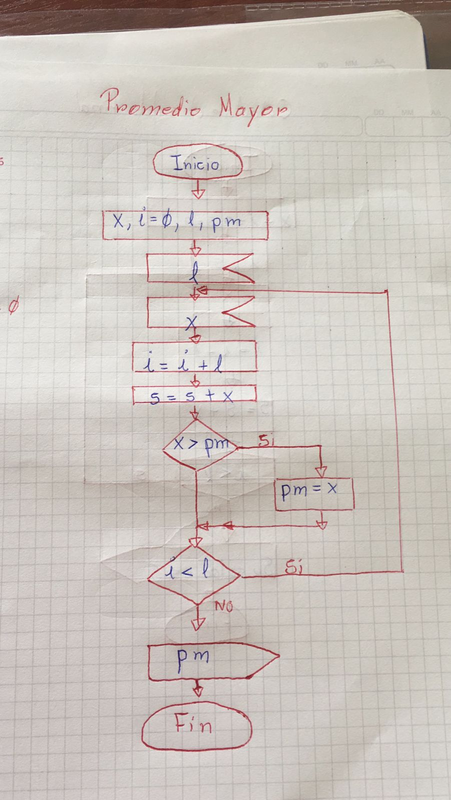 Promedio Mayor
s
Inicio
x, i=ø, l, pm
l
ø
x
i = i + l
s = s + x
x > pm
Si
pm = x
i < l
Si
NO
pm
Fin